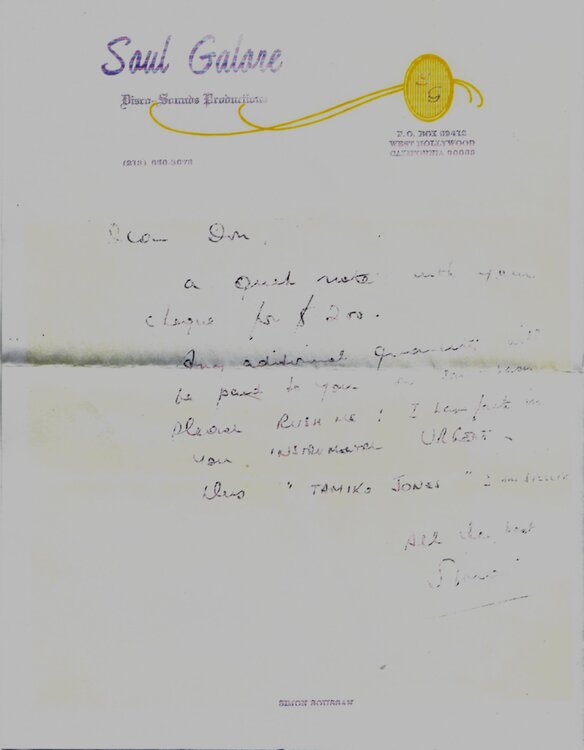 Soul Galore
Disco-Sounds Productions
S G
P.O. BOX 69412
WEST HOLLYWOOD
CALIFORNIA 90069
Dear Don,
a quick note with your
cheque for $200.
Any additional will
be paid to you
please RUSH ME! I
you INSTRUMENTAL URGENT.
Plus "TAMIKO JONES" I
All the best
Simon
SIMON SOUSSAN